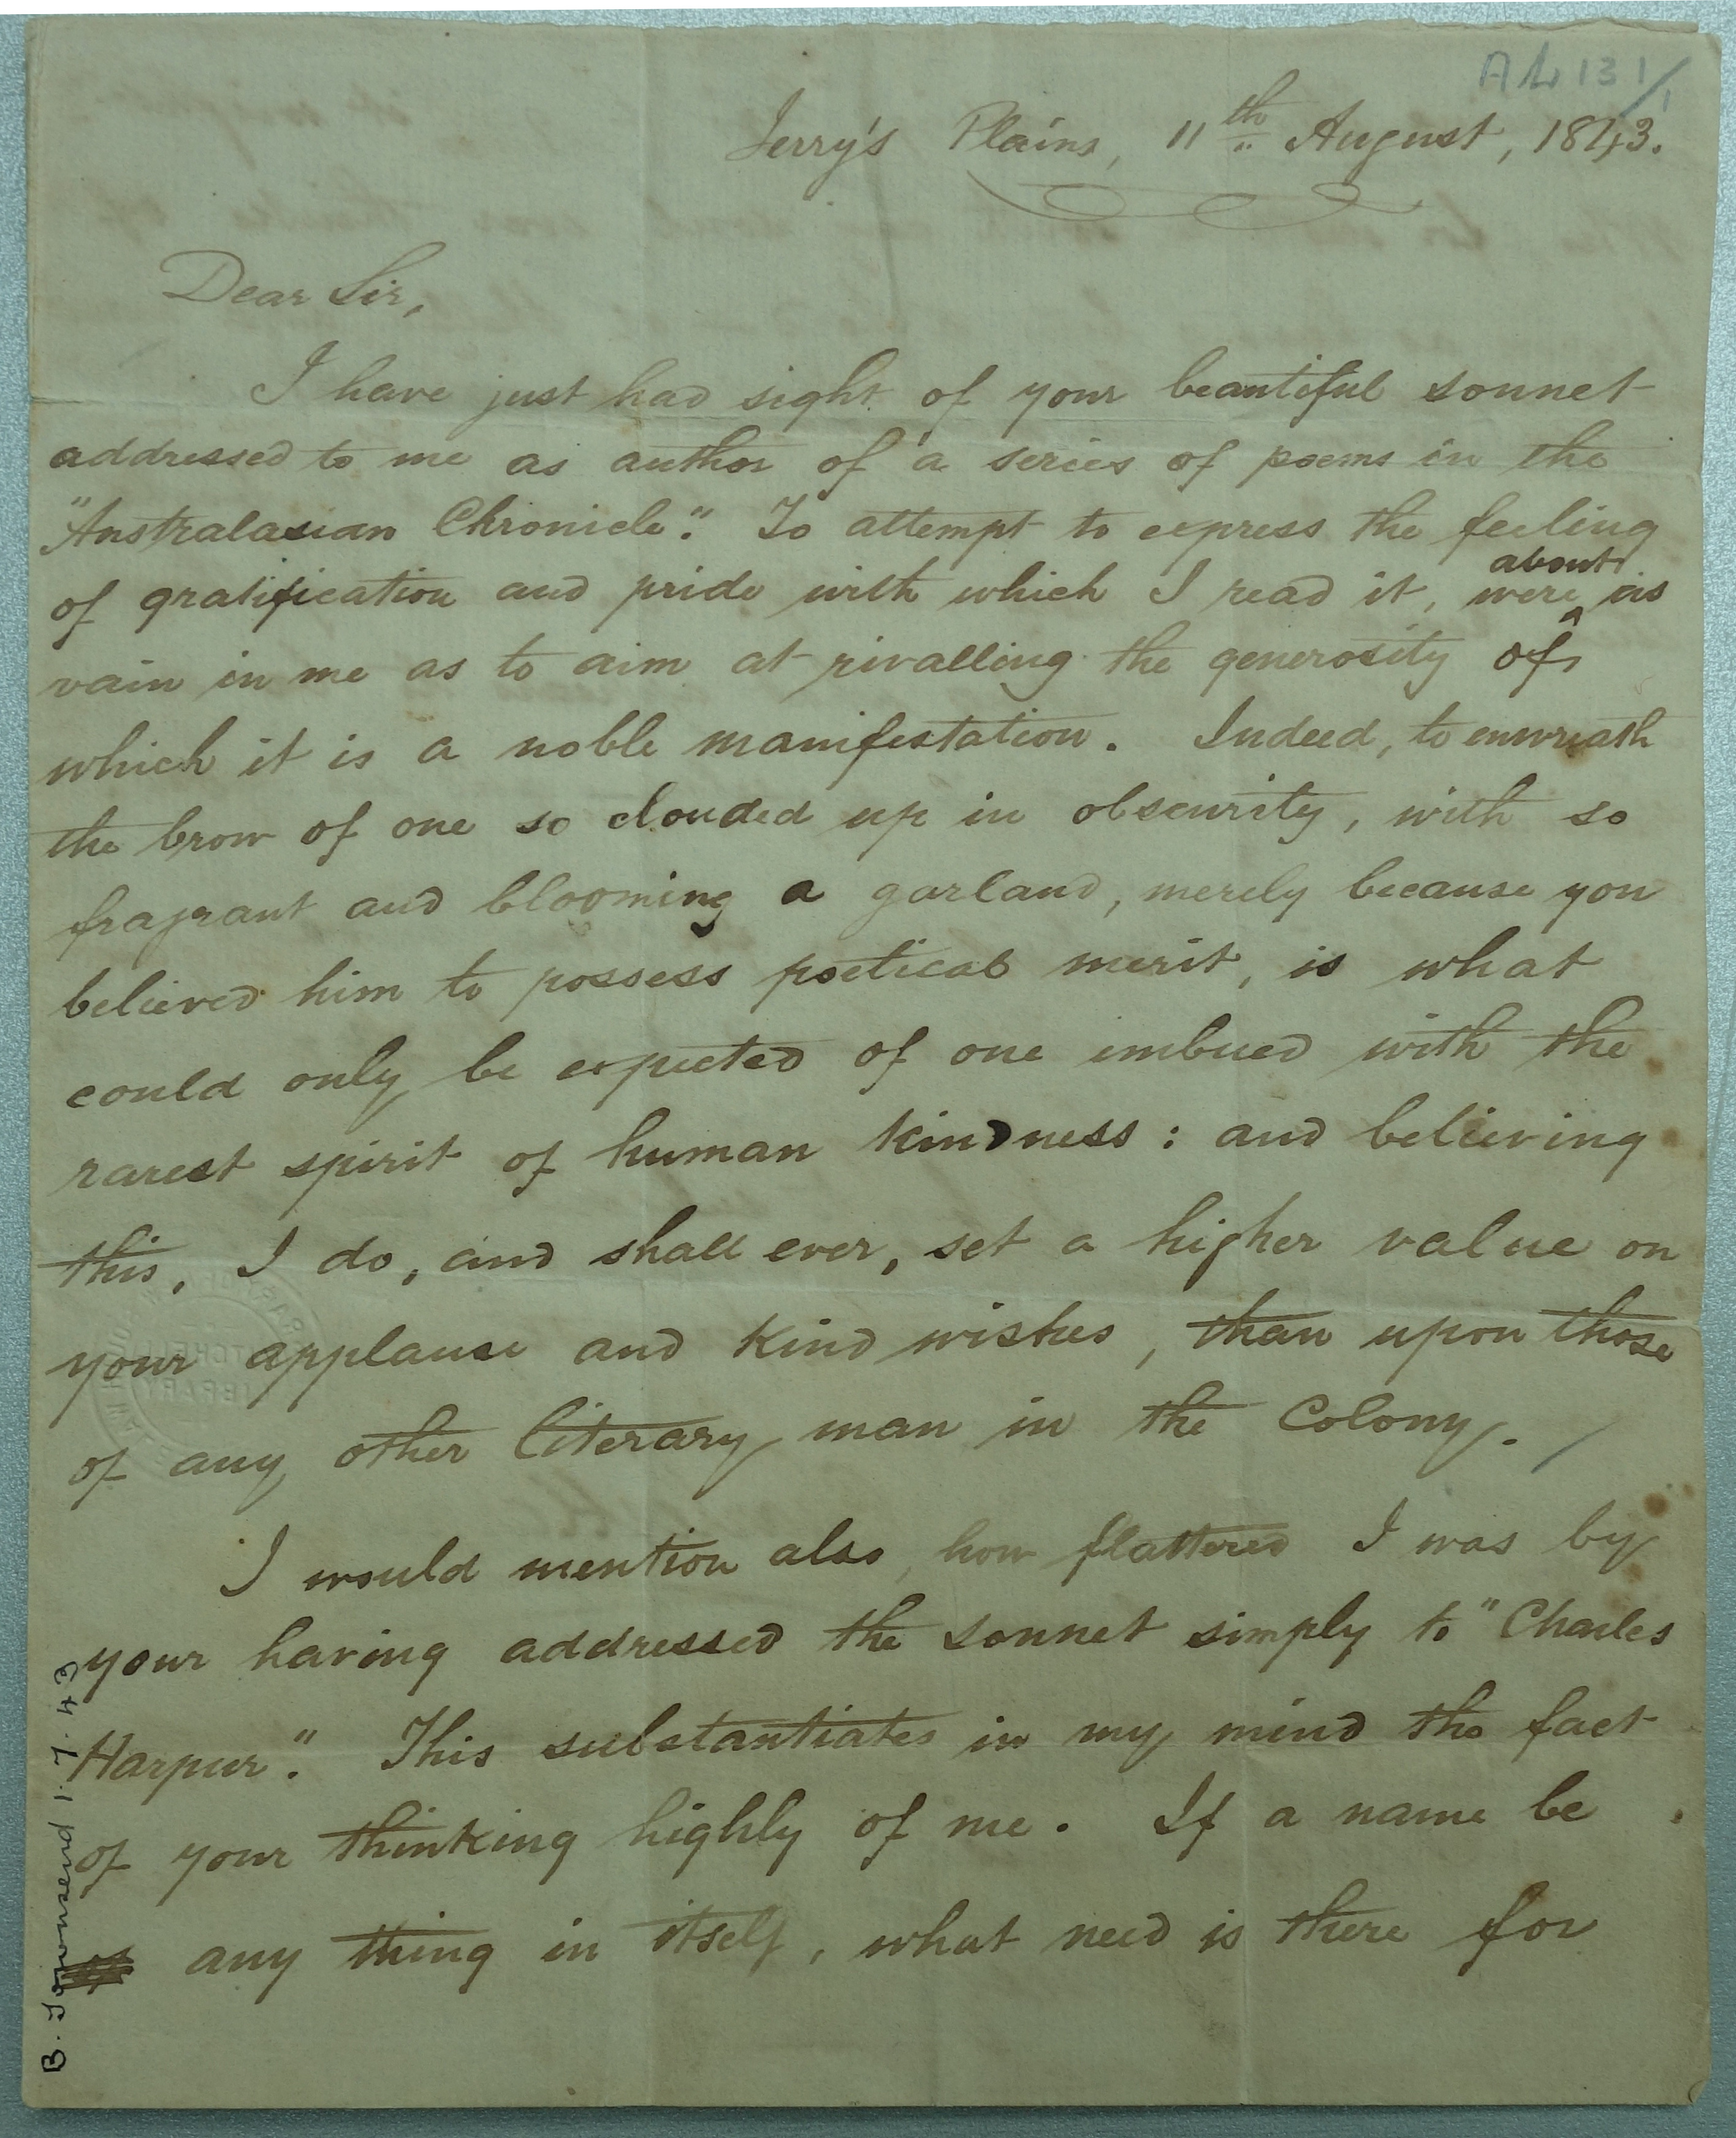 AL 131/1
Jerry's Plains, 11th August, 1843.
Dear Sir,
I have just had sight of your beautiful sonnet
addressed to me as author of a series of poems in the
"Australasian Chronicle". To attempt to express the feeling
of gratification and pride with which I read it, were about as
vain in me as to aim at rivalling the generosity of
which it is a noble manifestation. Indeed, to enwreath
the brow of one so clouded up in obscurity, with so
fragrant and blooming a garland, merely because you
believed him to possess poetical merit, is what
could only be expected of one imbued with the
rarest spirit of human kindness: and believing
this, I do, and shall ever, set a higher value on
your applause and kind wishes, than upon those
of any other literary man in the Colony.
I would mention also, how flattered I was by
your having addressed the sonnet simply to "Charles
Harpur". This substantiates in my mind the fact
of your thinking highly of me. If a name be
any thing in itself, what need is there for
B. Townsend 1.7.43